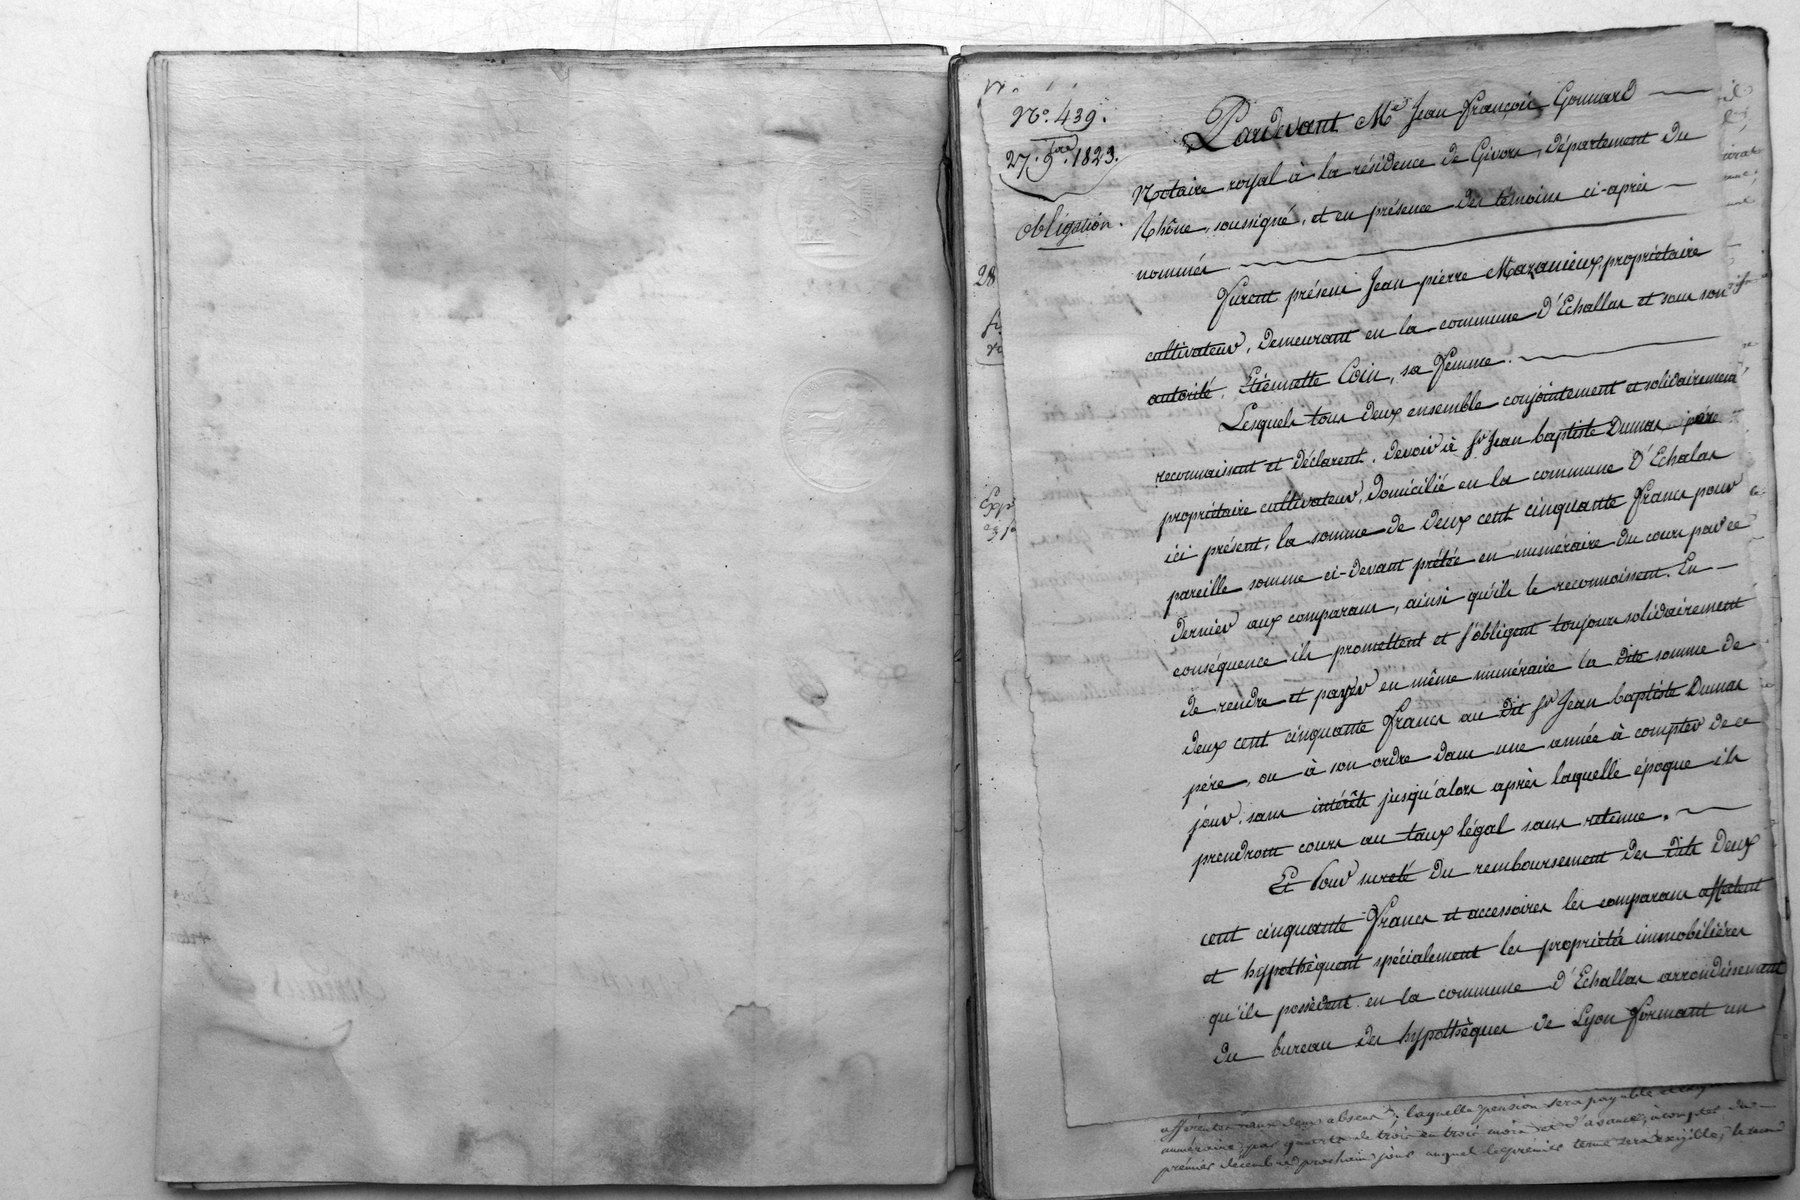 N.° 439.
27. 9bre. 1823.
Obligation.
28
Pardevant Me Jean François Gonnard
Notaire royal à la résidence de Givors, département du
Rhône, soussigné, et en présence des témoins ci-après
nommés
Furent présens Jean pierre Mazanieux, propriétaire
cultivateur, demeurant en la commune D'Echallas et sous son
autorité, Etiennette Coin, sa femme.
Lesquels tous deux ensemble conjointement et solidairement
reconnaissent et déclarent, devoir à Sr Jean baptiste Dumas père
propriétaire cultivateur, domicilié en la commune D'Echalas
ici présent, la somme de deux cent cinquante francs pour
pareille somme ci-devant prêtée en numéraire du cours par ce
dernier aux comparans, ainsi qu'ils le reconnoissent. En
conséquence ils promettent et s'obligent toujours solidairement
de rendre et payer en même numéraire la dite somme de
deux cent cinquante francs au dit Sr Jean baptiste Dumas
père, ou à son ordre dans une année à compter de ce
jour, sans intérêts jusqu'alors après laquelle époque ils
prendront cours au taux légal sans retenue.
Et Pour sureté du remboursement des dits deux
cent cinquante francs et accessoires les comparans affectent
et hypothèquent spécialement les propriétés immobilières
qu'ils possèdent en la commune D'Echallas arrondissement
du bureau des hypothèques de Lyon formant un
afférentes aux deux absens; laquelle pension sera payable
numéraire, par quarts de trois en trois mois et d'avance, à compter du
premier décembre prochain jour auquel le premier terme sera exigible, le second